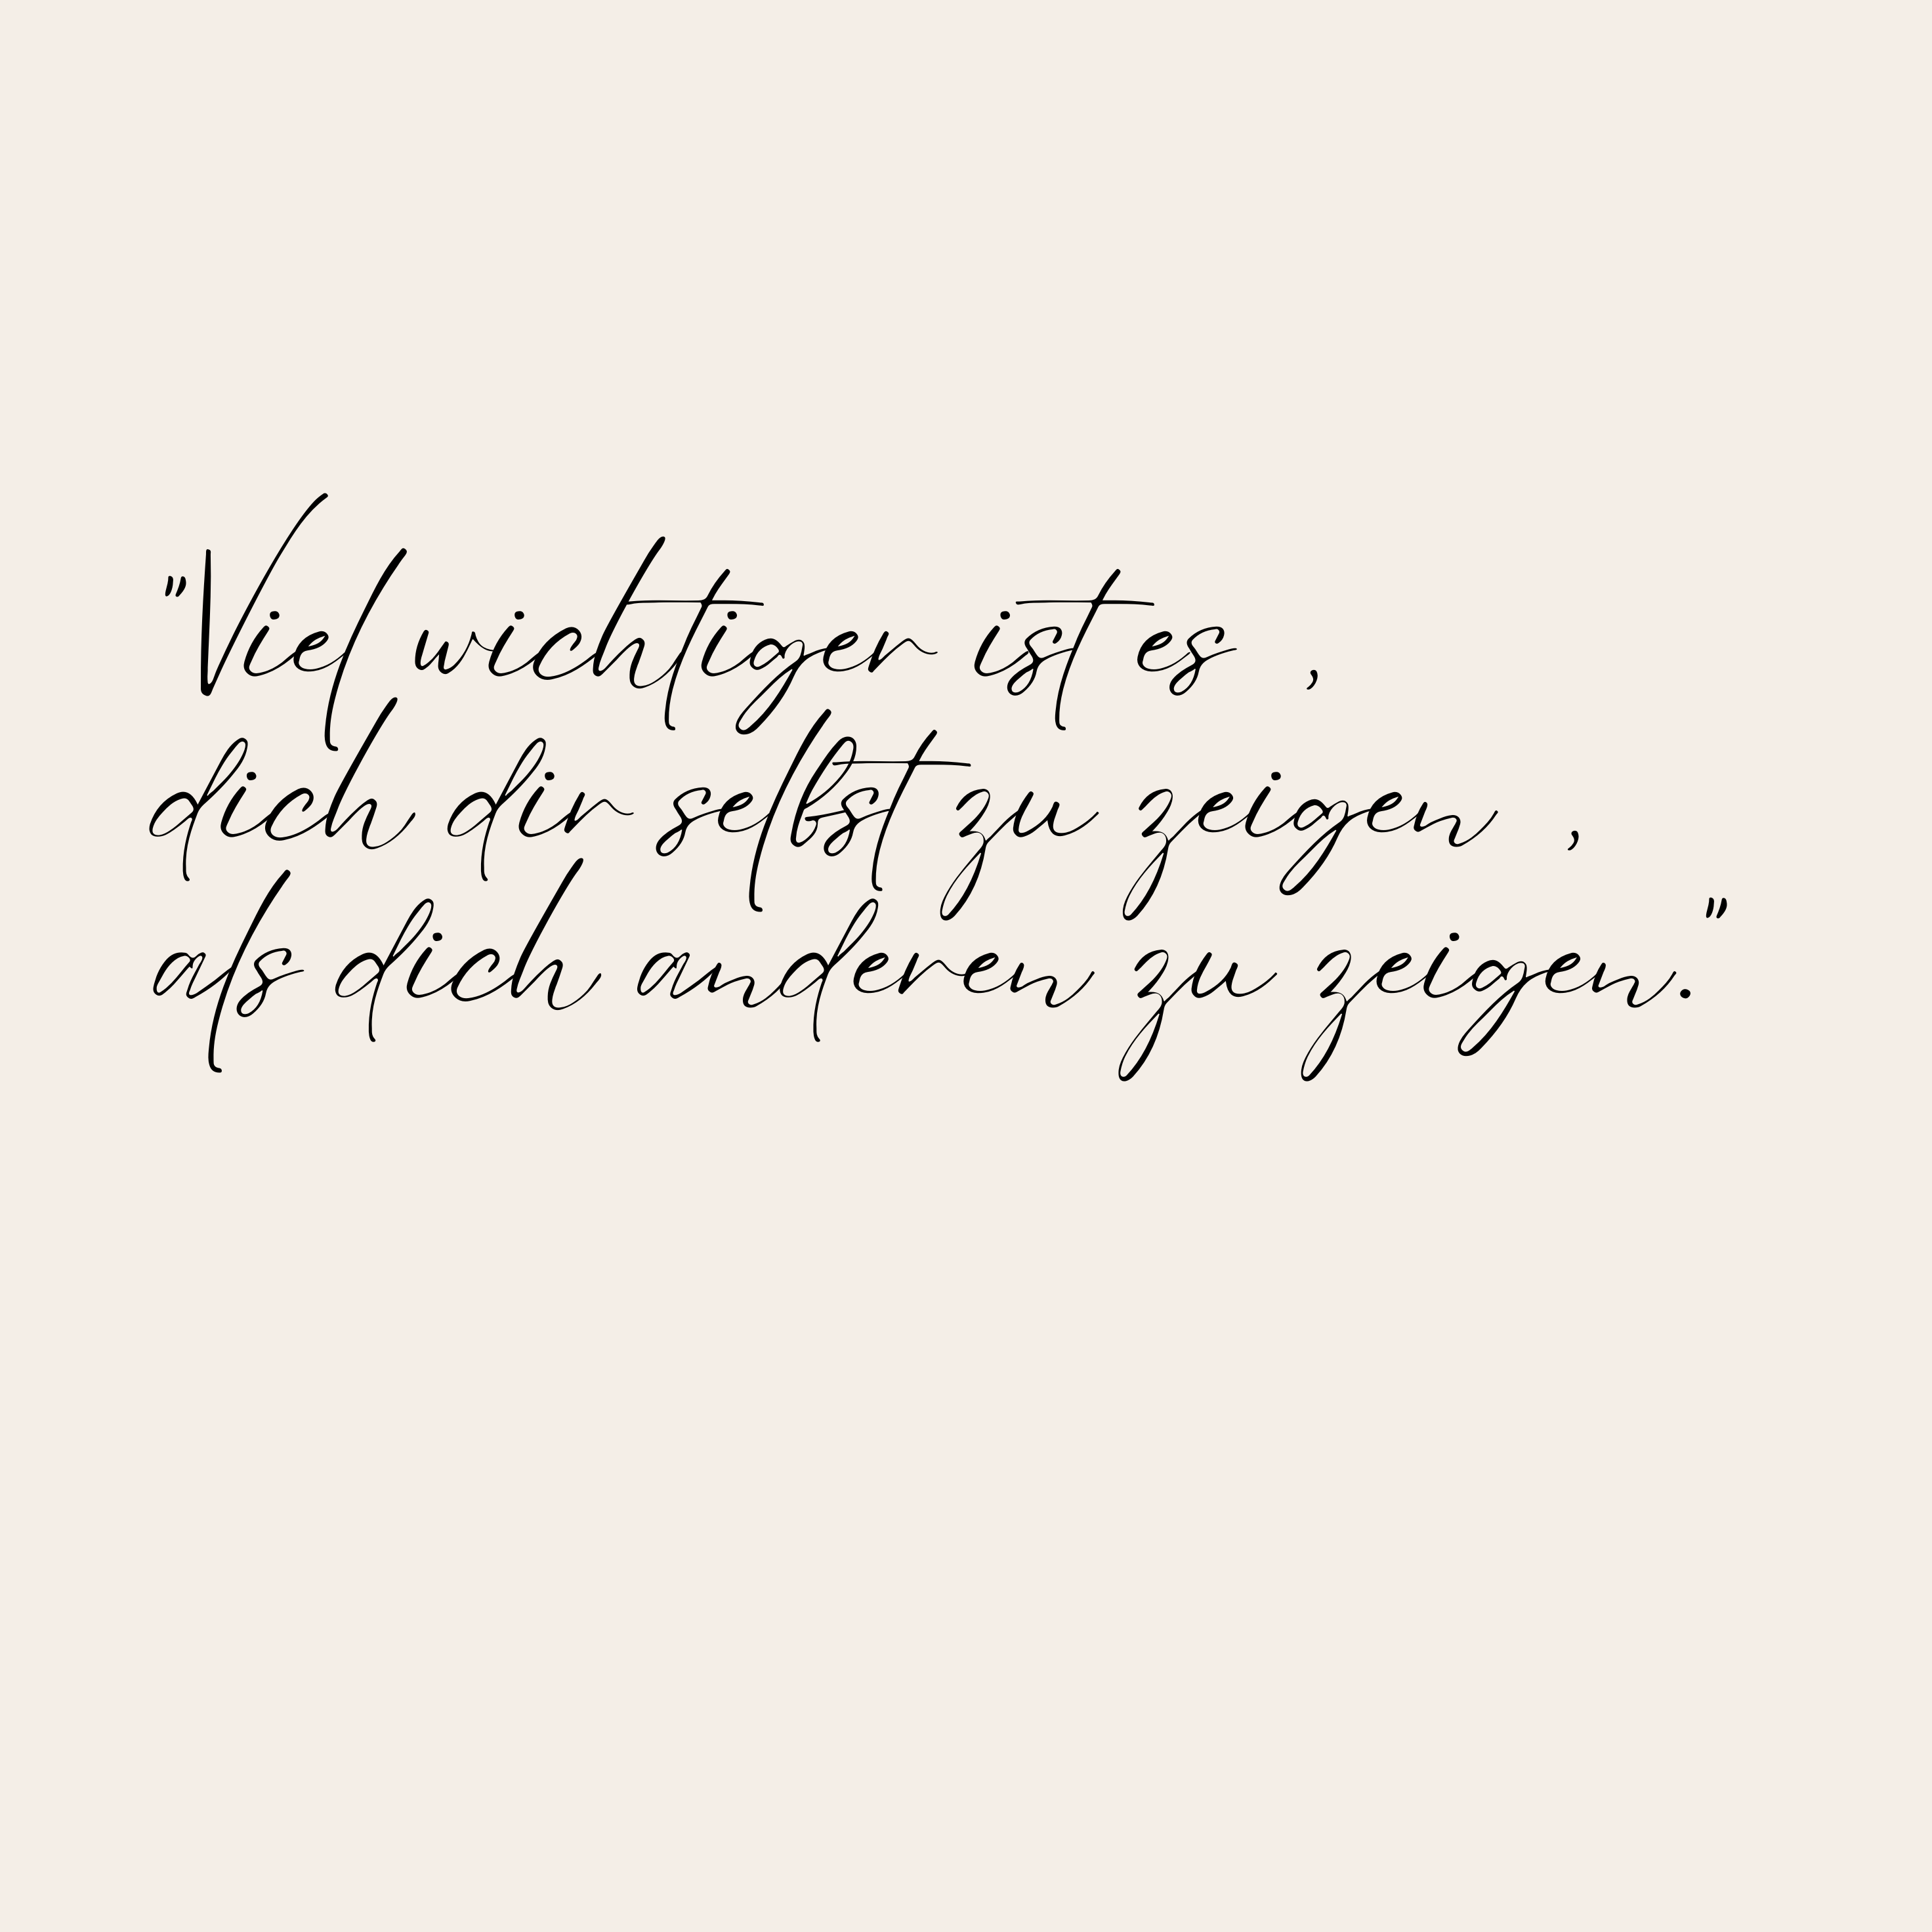 "Viel wichtiger ist es ,
dich dir selbst zu zeigen ,
als dich anderen zu zeigen."